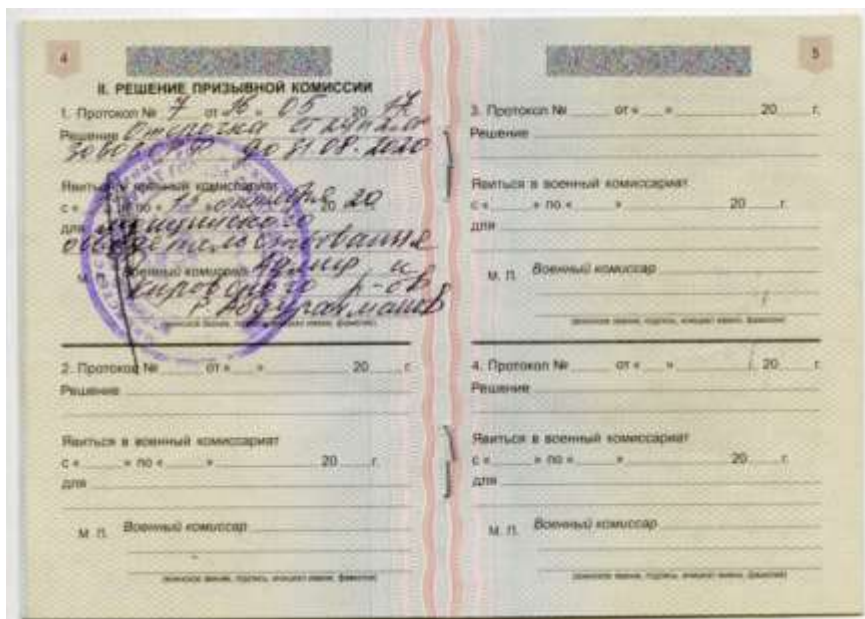 4
II. РЕШЕНИЕ ПРИЗЫВНОЙ КОМИССИИ
1. Протокол № 7 от « 16 » 05 20 17
Решение Отсрочка от
до 31.08.2020
Явиться в военный комиссариат
с « » по « 12 » октября 20 20
для медицинского
освидетельствования
М. Военный комиссар
Кировского р-ов
Г. Абдурахманов
(воинское звание, подпись, инициал имени, фамилия)
2. Протокол № от « » 20 г.
Решение
Явиться в военный комиссариат
с « » по « » 20 г.
для
М. П. Военный комиссар
(воинское звание, подпись, инициал имени, фамилия)
5
3. Протокол № от « » 20 г.
Решение
Явиться в военный комиссариат
с « » по « » 20 г.
для
М. П. Военный комиссар
(воинское звание, подпись, инициал имени, фамилия)
4. Протокол № от « » 20 г.
Решение
Явиться в военный комиссариат
с « » по « » 20 г.
для
М. П. Военный комиссар
(воинское звание, подпись, инициал имени, фамилия)